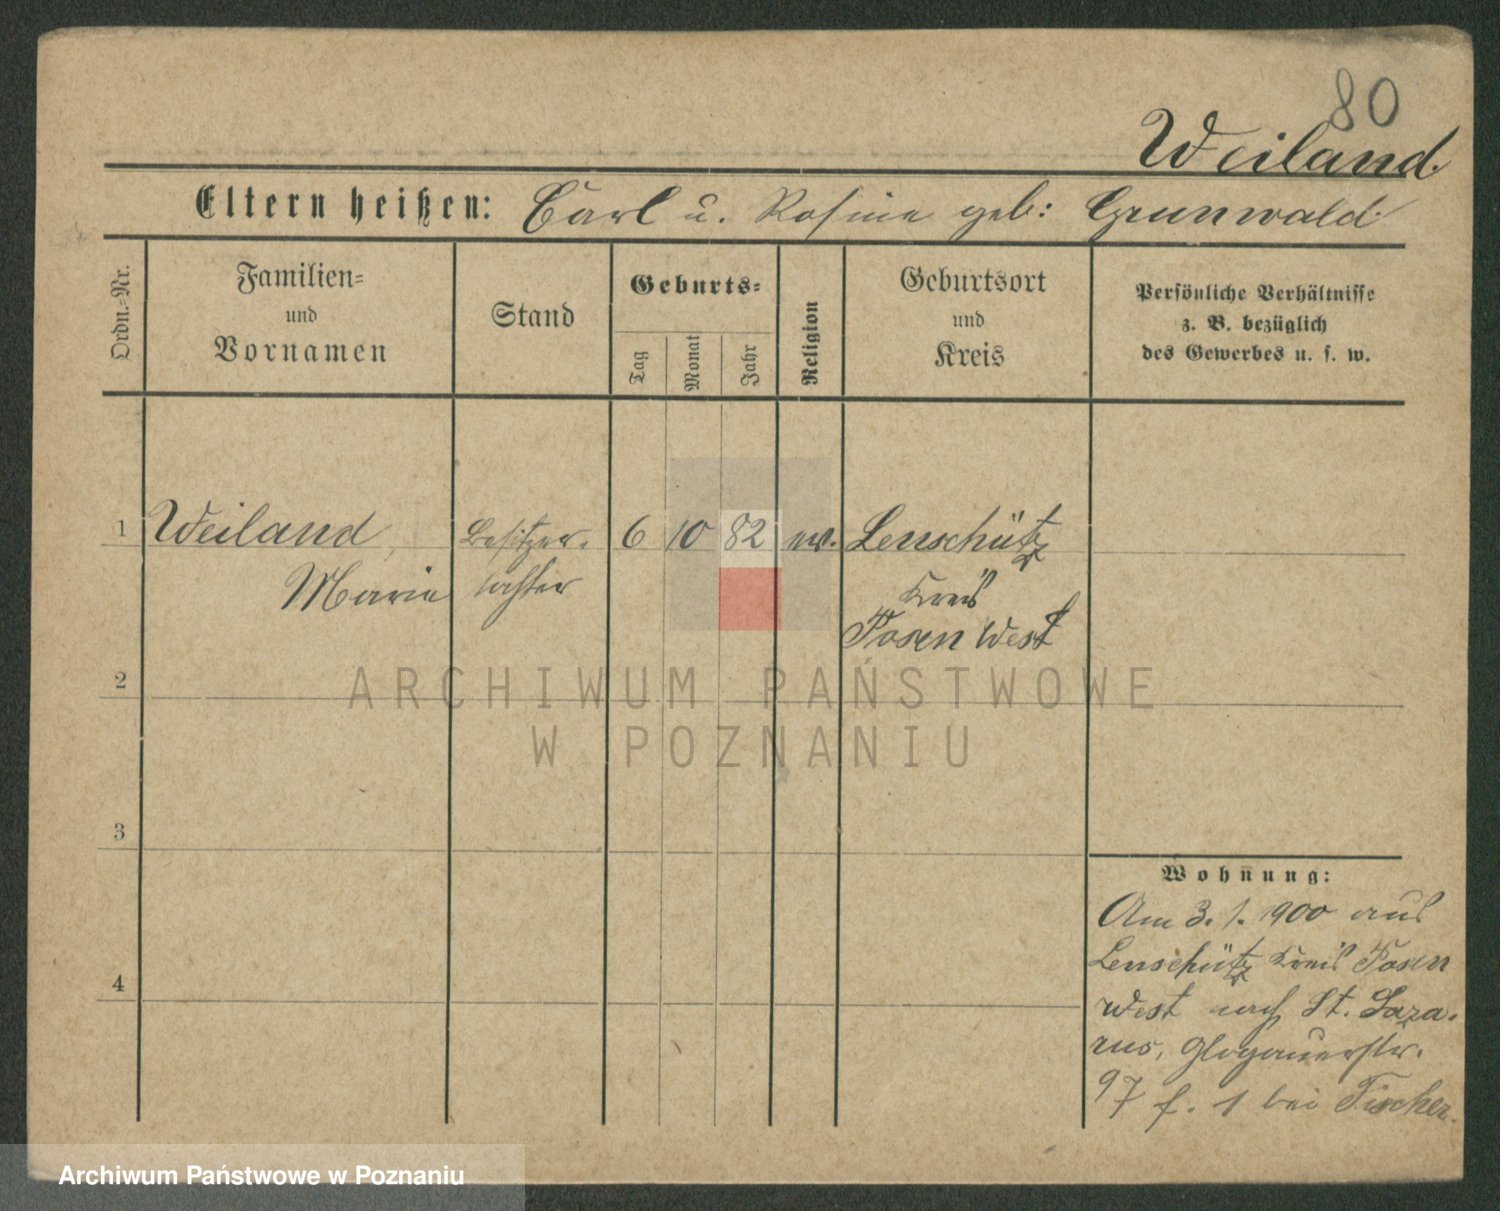 80
Weiland.
Eltern heißen: Carl u. Rosine geb: Grunwald.
Ordn.-Nr.
Familien-
und
Vornamen
Stand
Geburts-
Tag
Monat
Jahr
Religion
Geburtsort
und
Kreis
Persönliche Verhältnisse
z. B. bezüglich
des Gewerbes u. s. w.
1 Weiland, Besitzer- 6 10 82 ev. Lenschütz
Marie tochter Kreis
Posen West
2
ARCHIWUM PAŃSTWOWE
W POZNANIU
3
4
Wohnung:
Am 3. 1. 900 aus
Lenschütz Kreis Posen
West nach St. Laza-
rus, Glogauerstr.
97 f. 1 bei Fischer.
Archiwum Państwowe w Poznaniu